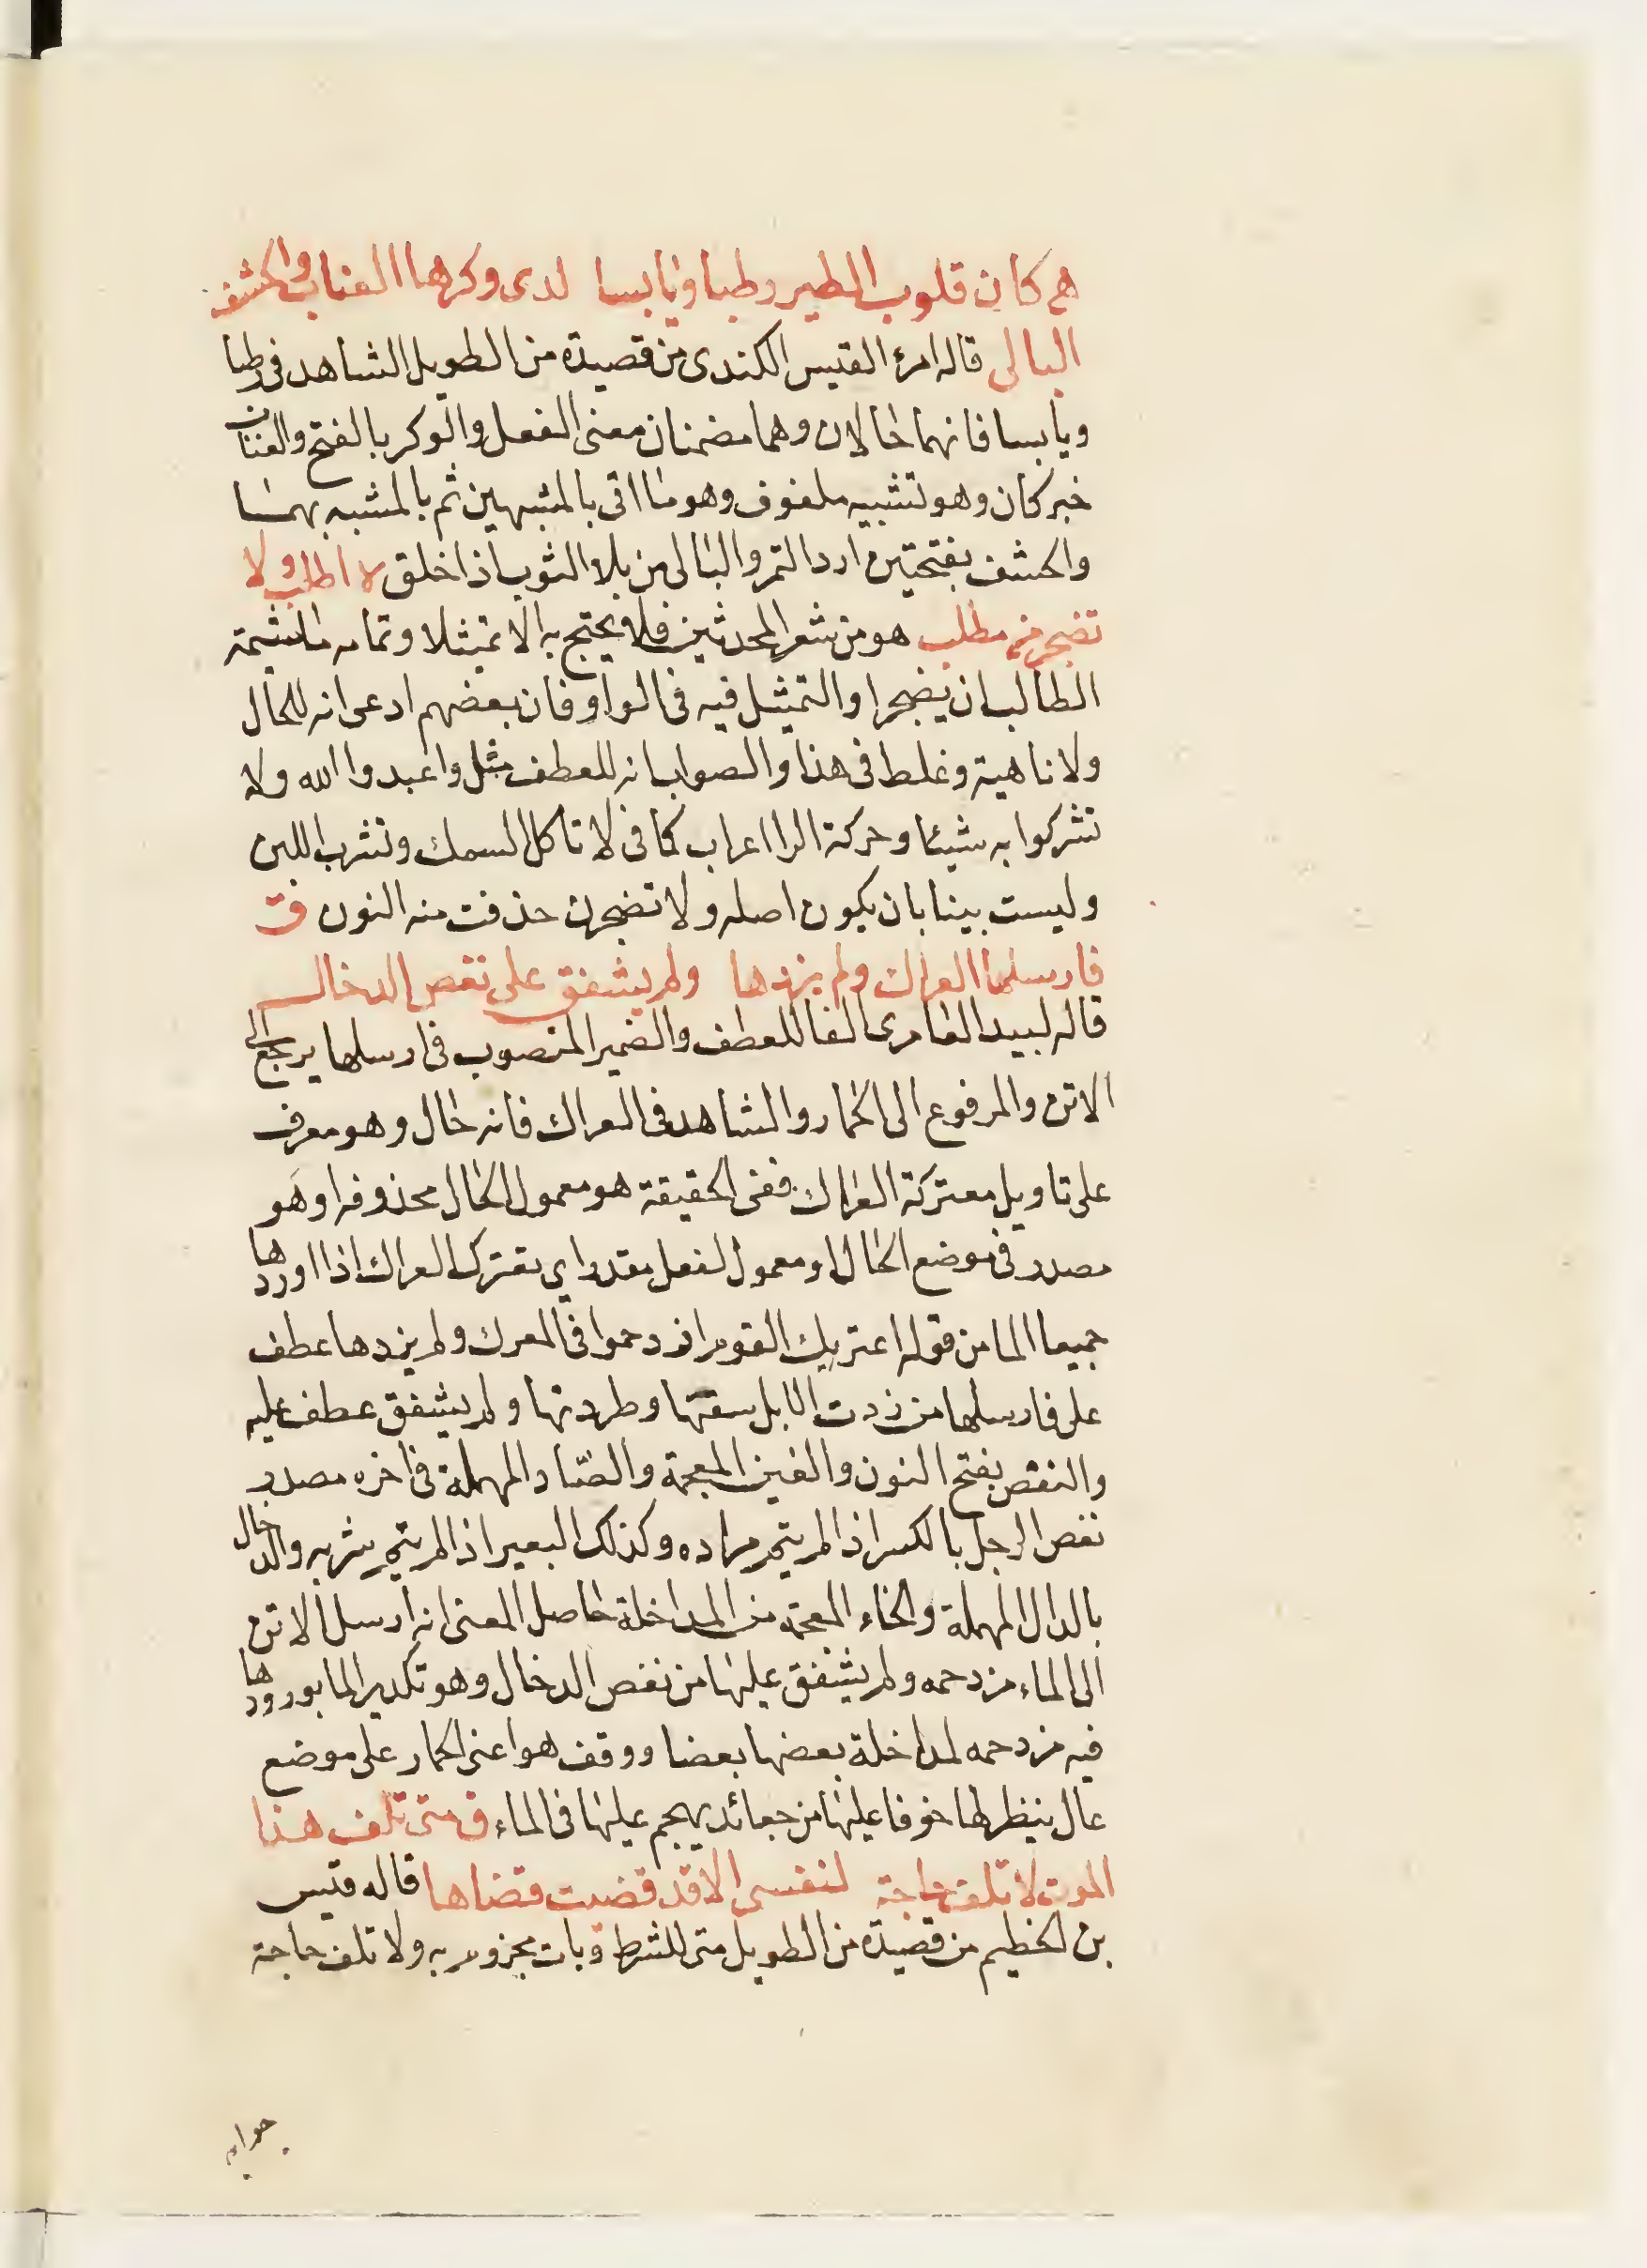 هع كان قلوب الطير رطبا ويابسا لدى وكرها العناب والحشف
البالى قاله امرئ القيس الكندى من قصيدة من الطويل الشاهد فى رطبا
ويابسا فانهما حالان وهما مضمنان معنى الفعل والوكر بالفتح والعناب
خبر كان وهو تشبيه ملفوف وهو ما اتى بالمشبهين ثم بالمشبه بهما
والحشف بفتحتين اردا التمر والبالى من بلا الثوب اذا خلق لا اطلب ولا
تضجر من مطلب هو من شعر المحدثين فلا يحتج به الا تمثيلا وتمامه
الطالب ان يضجرا والتمثيل فيه فى الواو فان بعضهم ادعى انه للحال
ولا ناهية وغلط فى هذا والصواب انه للعطف مثل واعبدوا الله ولا
تشركوا به شيئا وحركة الرا اعراب كما فى لا تاكل السمك وتشرب اللبن
وليست بينا بان يكون اصله ولا تضجرن حذفت منه النون ق
فارسلها العراك ولم يزدها ولم يشفق على نغص الدخال
قاله لبيد العامرى الفا للعطف والضمير المنصوب فى ارسلها يرجع الى
الاتن والمرفوع الى الحمار والشاهد فى العراك فانه حال وهو معرف
على تاويل معتركة العراك ففى الحقيقة هو معمول الحال محذوفه او هو
مصدر فى موضع الحال او معمول لفعل مقدر اى تعترك العراك اذا اوردها
جميعا الما من قوله اعتريك القوم از دحموا فى المعرك ولم يزدها عطف
على فارسلها من زدت الابل سقتها وطردتها ولم يشفق عطف عليه
والنغص بفتح النون والغين المعجمة والصاد المهملة فى اخره مصدر
نغص الرجل بالكسر اذا لم يتم مراده وكذلك البعير اذا لم يتم شربه والدخال
بالدال المهملة والخاء المعجمة من المداخلة حاصل المعنى انه ارسل الاتن
الى الماء مزدحمه ولم يشفق عليها من نغص الدخال وهو تكدير الما بورودها
فيه مزدحمه لمداخلة بعضها بعضا ووقف هو اعنى الحمار على موضع
عال ينظرها خوفا عليها من يهجم عليها فى الماء ق متى تلف هذا
الموت لا تلف حاجة لنفسى الا قد قضيت قضاها قاله قيس
بن الخطيم من قصيدة من الطويل متى للشرط ويات مجزوم به ولا تلف حاجة
جوابه